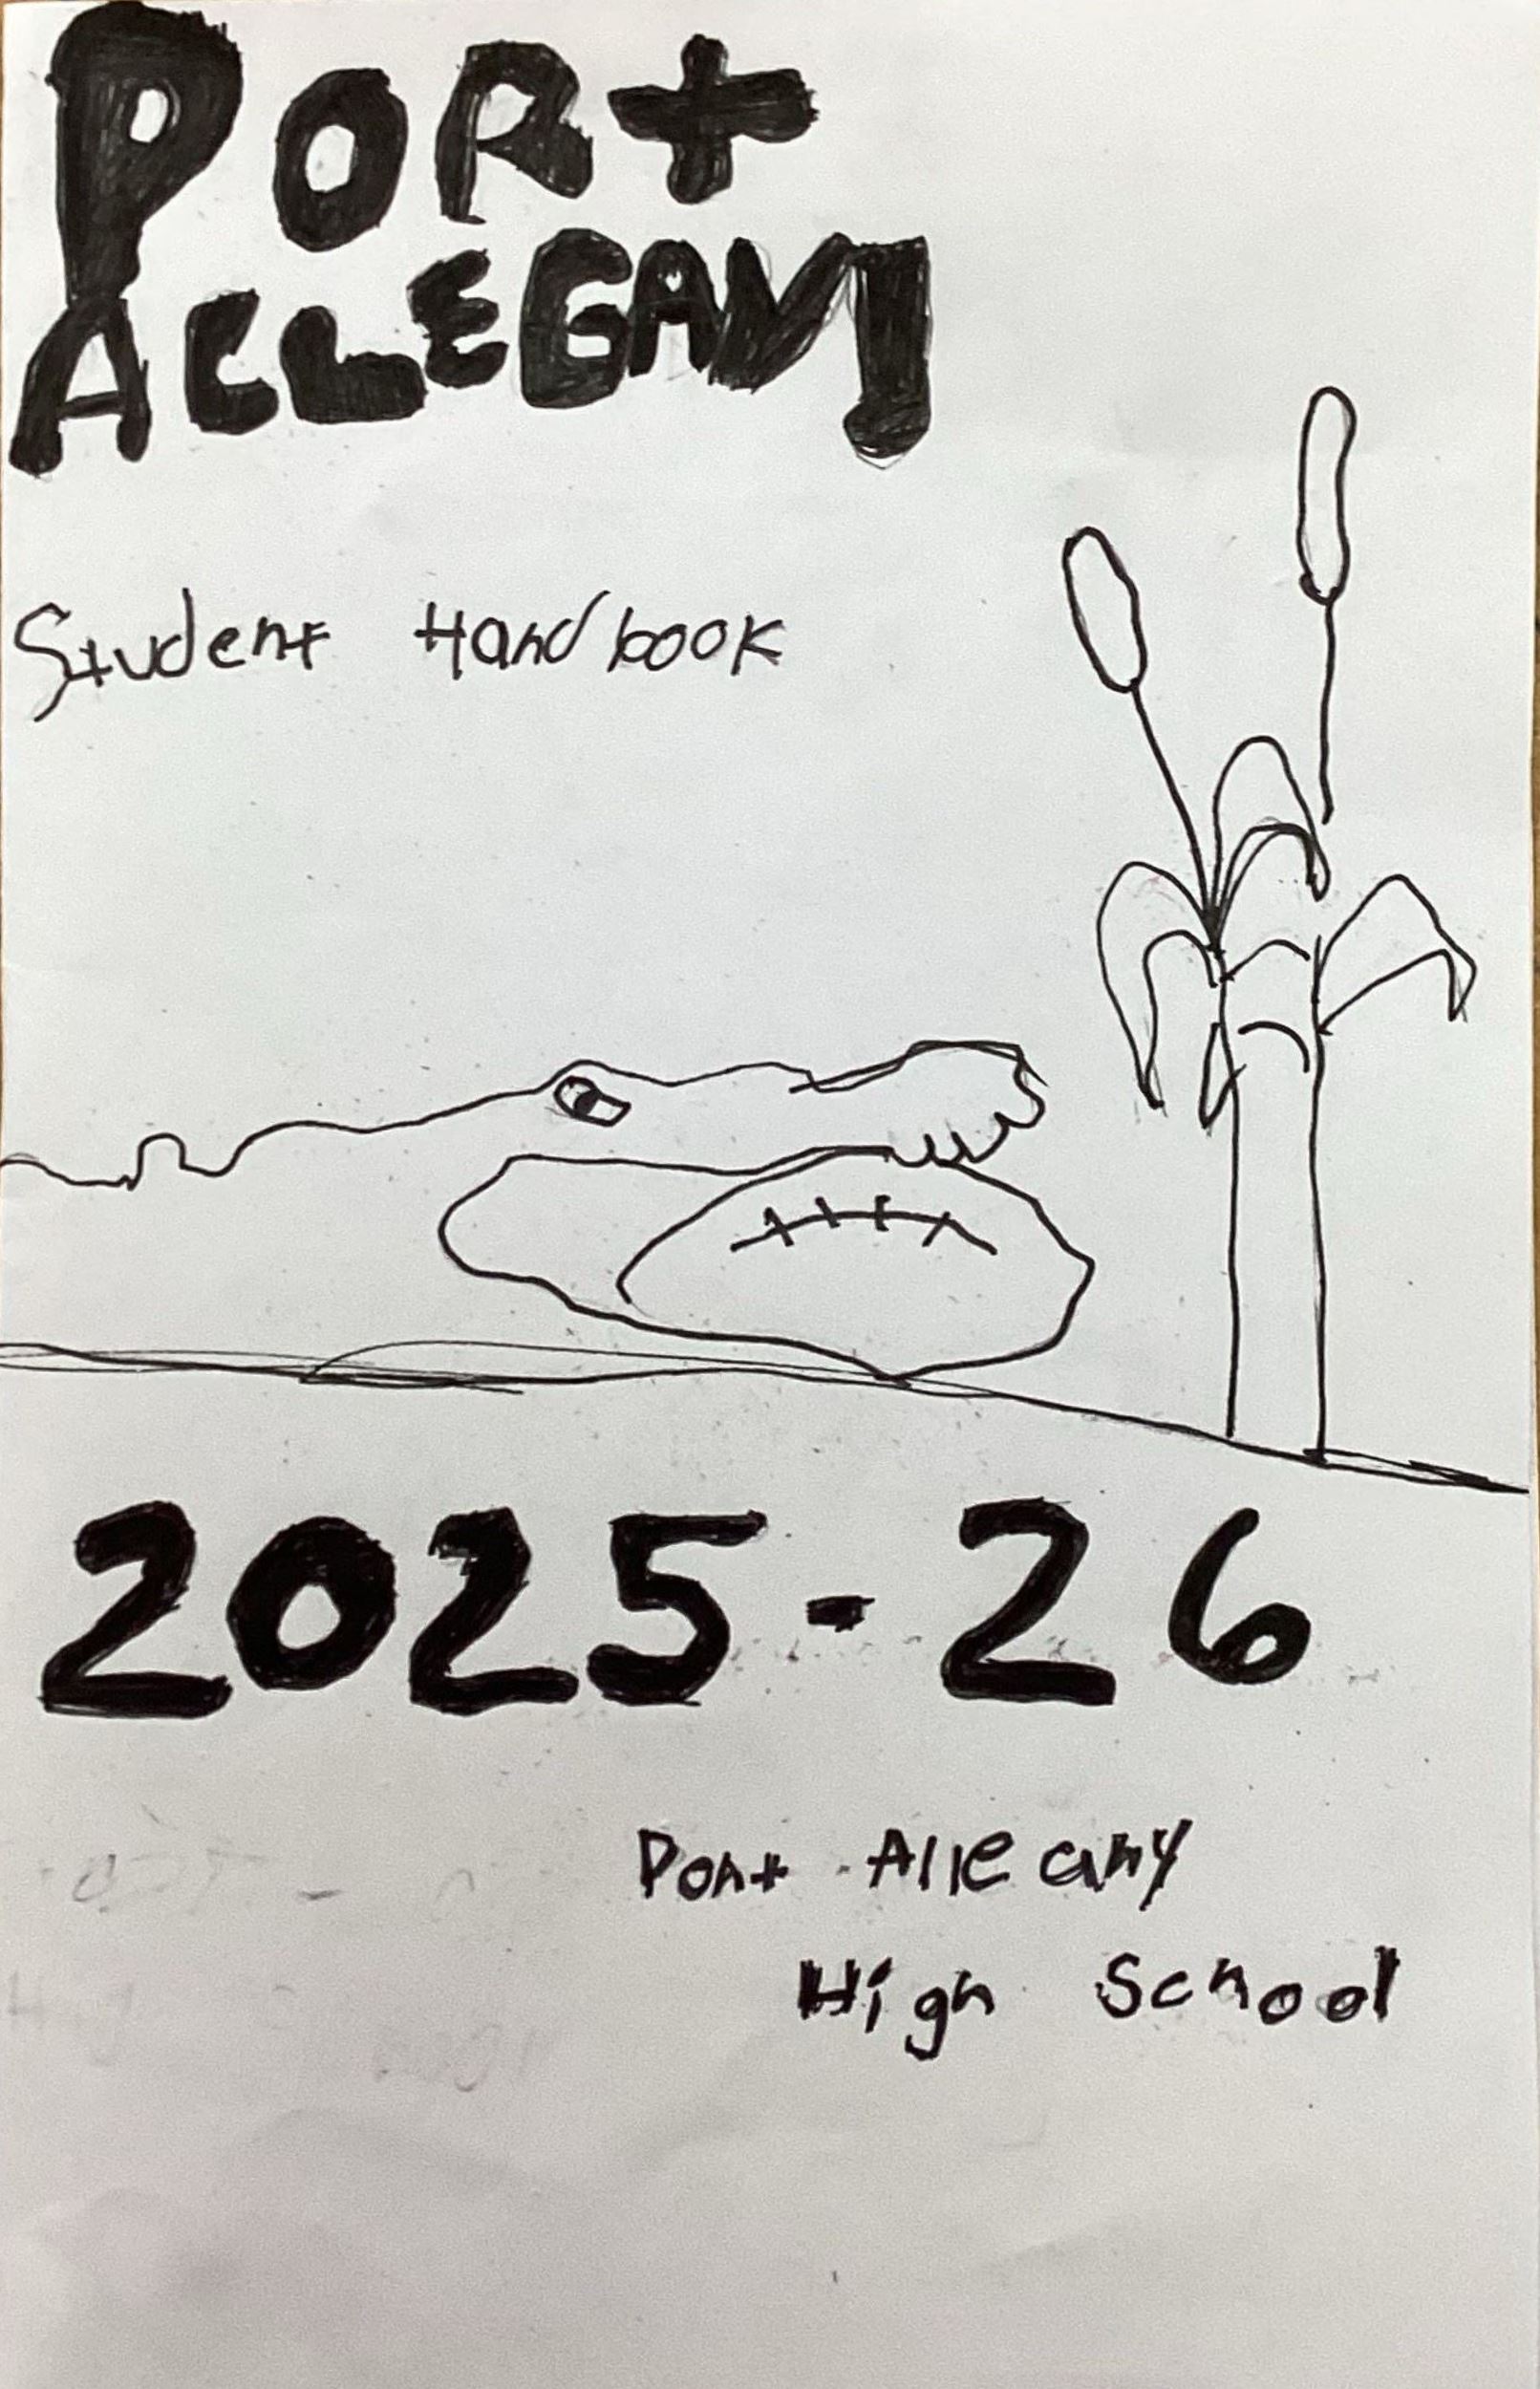 PORt
ALLEGANY
Student Handbook
2025-26
Port Allegany
High School